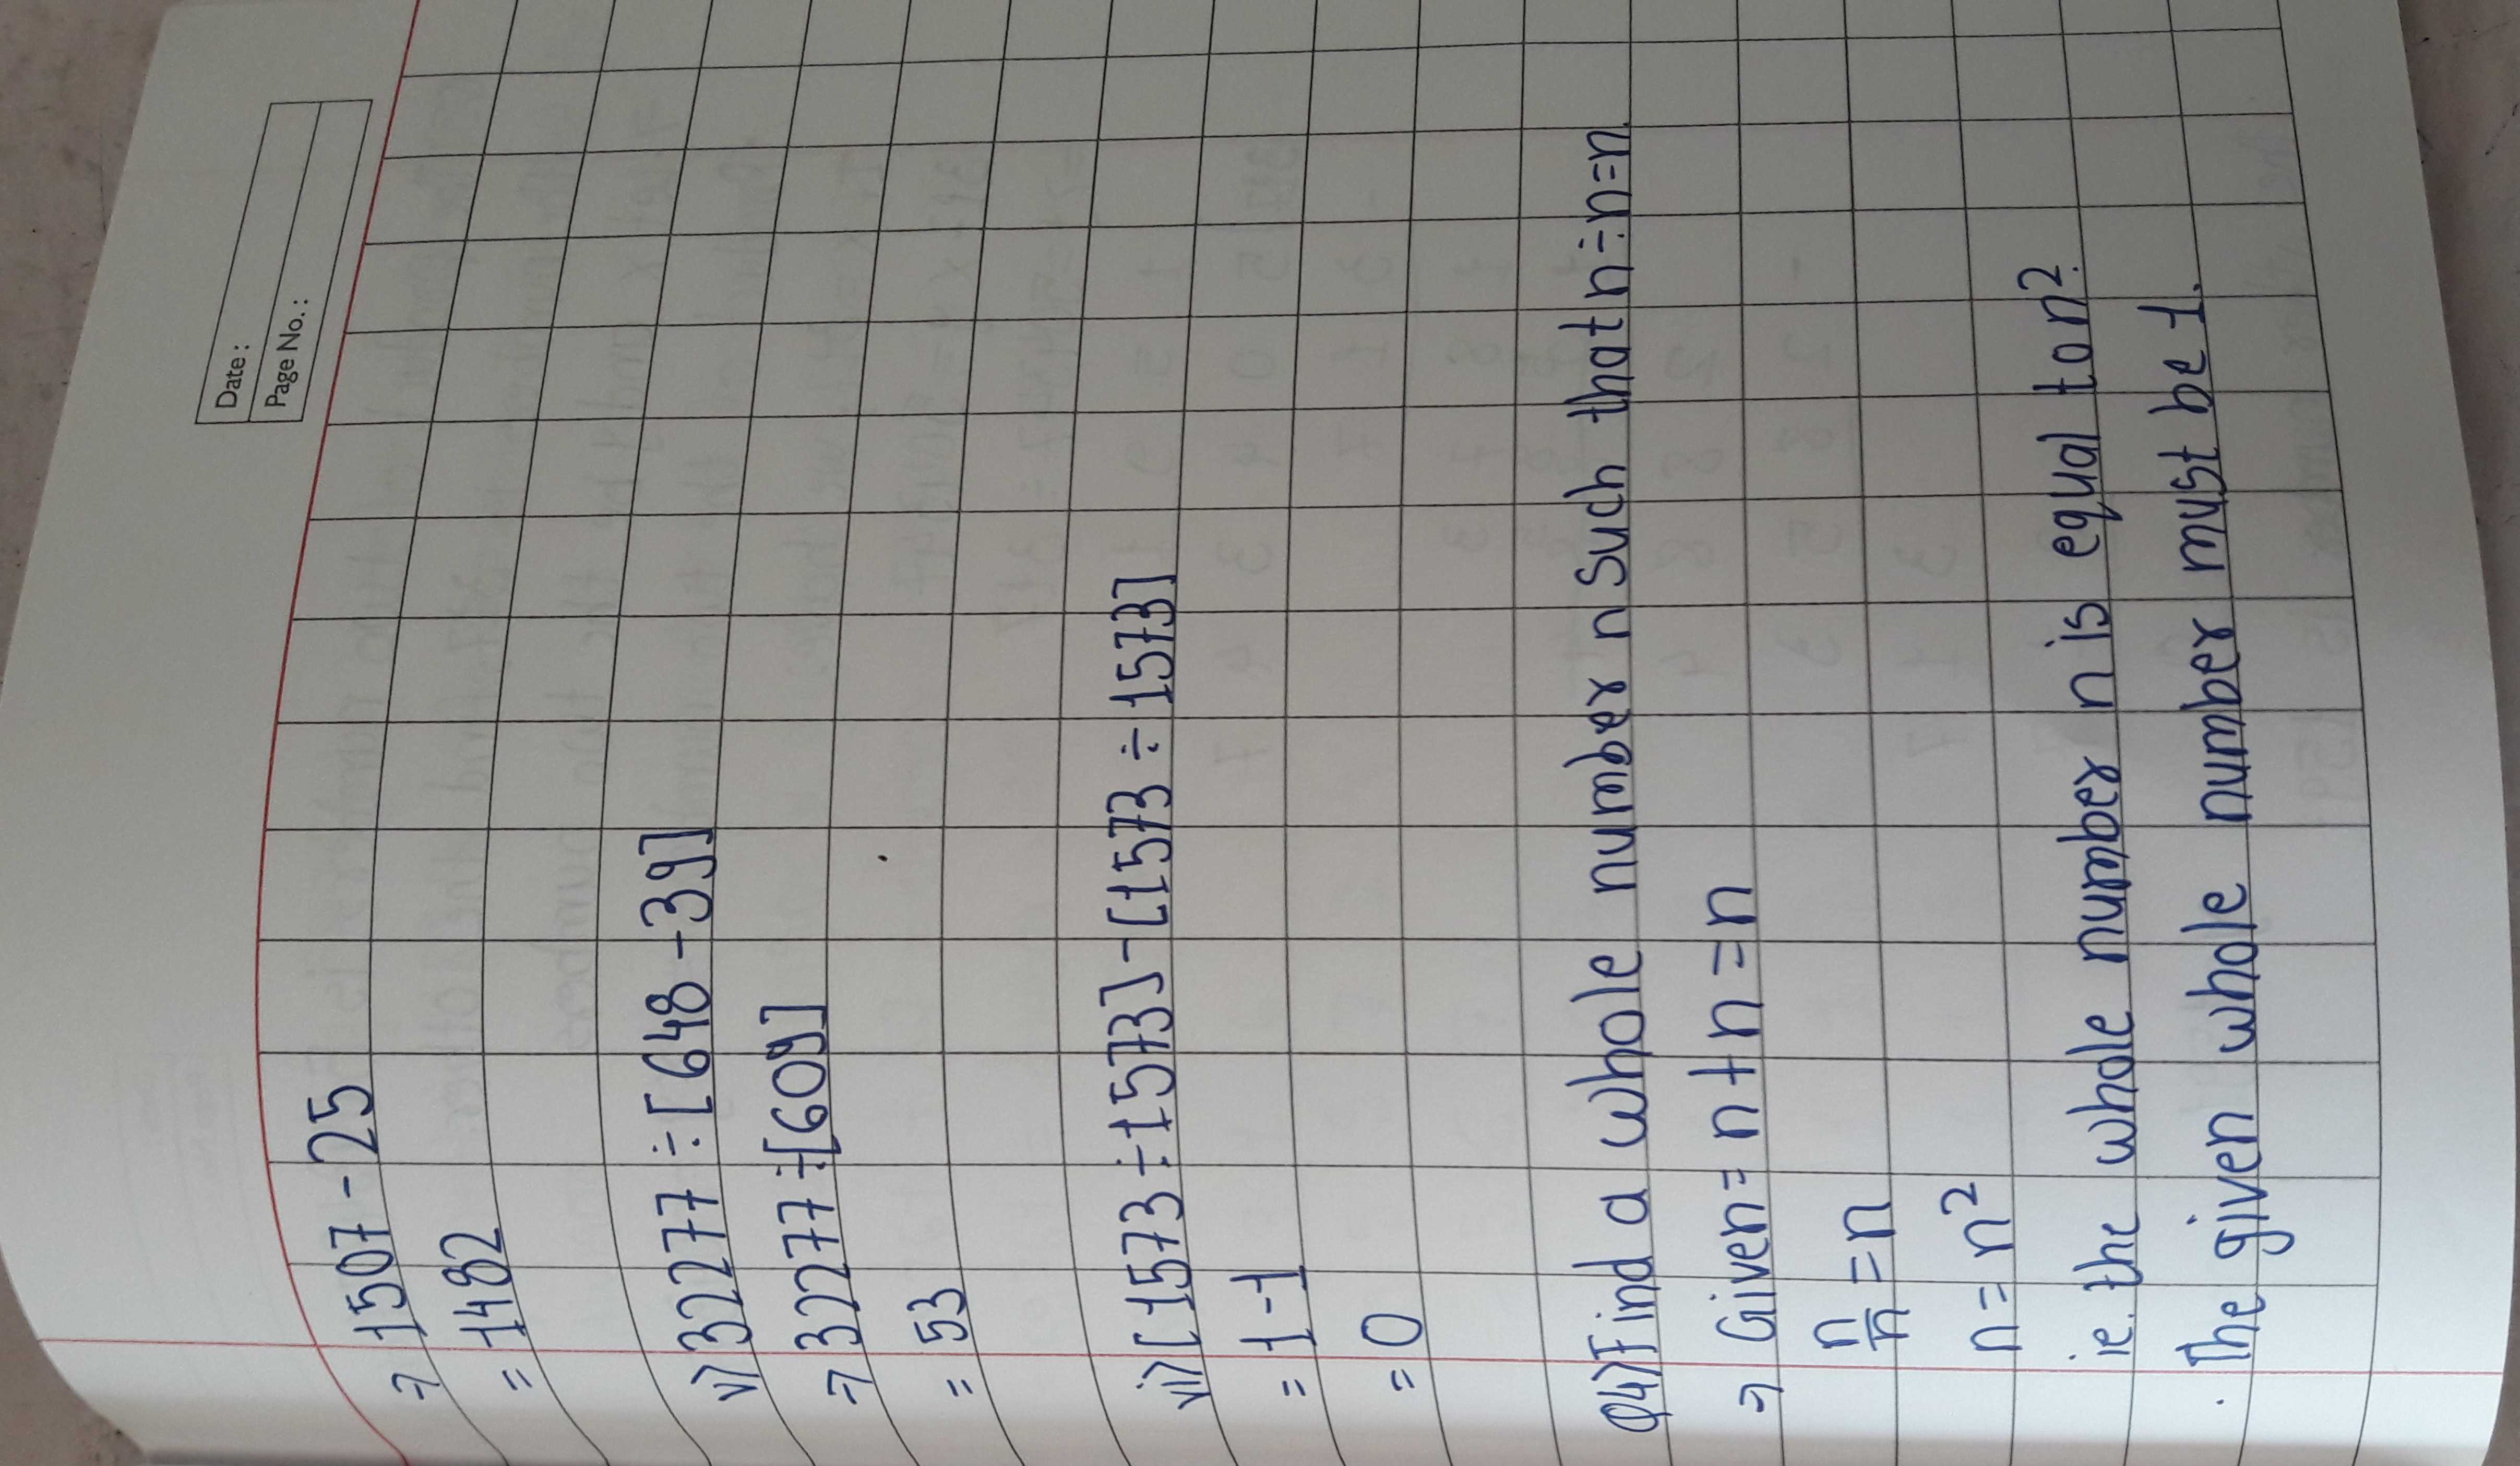 Date :
Page No. :
⇒ 1507 - 25
= 1482
v) 32277 ÷ [648 - 39]
⇒ 32277 ÷ [609]
= 53
vi) [1573 ÷ 1573] - [1573 ÷ 1573]
= 1 - 1
= 0
Q4) Find a whole number n such that n ÷ n = n.
⇒ Given = n + n = n
n/n = n
n = n²
ie. the whole number n is equal to n².
. The given whole number must be 1.